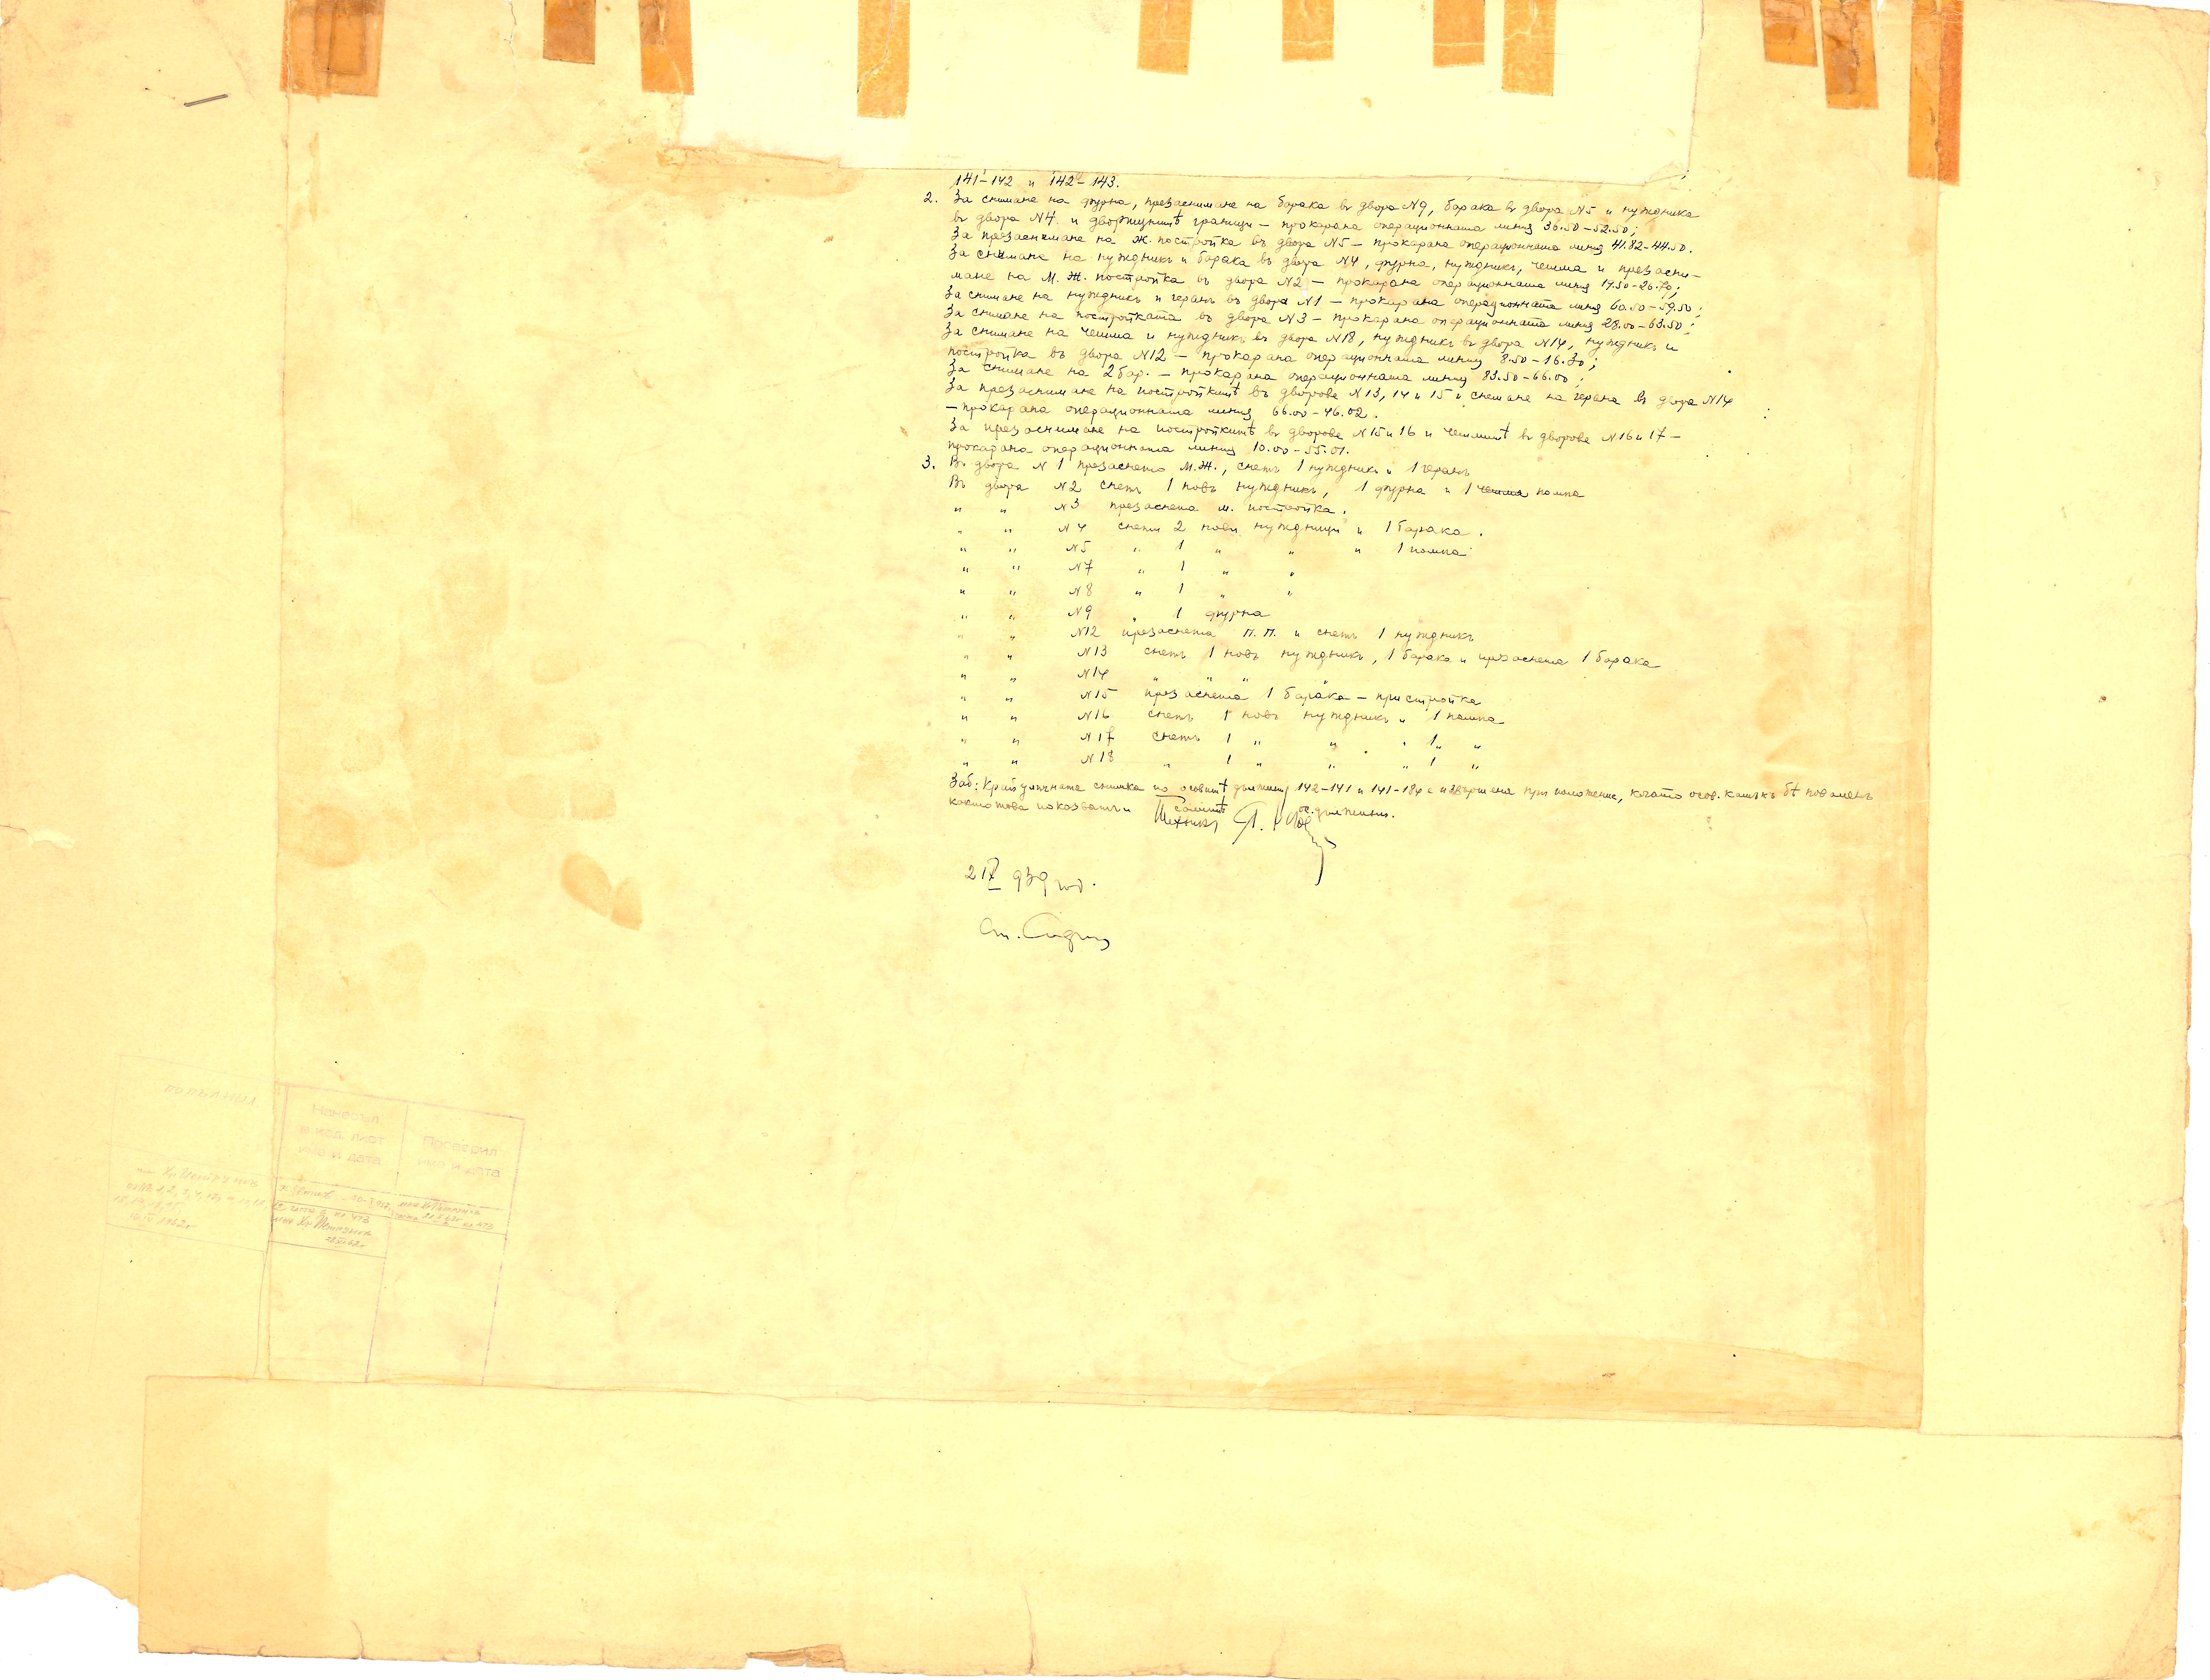 141-142 и 142-143.
2. За снимане на фурна, презаснимане на барака въ двора №9, барака въ двора №5 и нуждника
въ двора №4. и дворищнитѣ граници – прокарана операционната линия 36.50-52.50;
За презаснимане на Ж. постройка въ двора №5 – прокарана операционната линия 41.82-44.50.
За снимане на нуждникъ и барака въ двора №4, фурна, нуждникъ, чешма и презасни-
мане на М.Ж. постройка въ двора №2 – прокарана операционната линия 14.50-26.70;
За снимане на нуждникъ и геранъ въ двора №1 – прокарана операционната линия 60.50-59.50;
За снимане на постройката въ двора №3 – прокарана операционната линия 28.00-63.50;
За снимане на чешма и нуждникъ въ двора №18, нуждникъ въ двора №14, нуждникъ и
постройка въ двора №12 – прокарана операционната линия 8.50-16.30;
За снимане на 2 бар. – прокарана операционната линия 83.50-66.00;
За презаснимане на постройкитѣ въ дворове №13, 14 и 15 и снемане на герана въ двора №14
– прокарана операционната линия 66.00-46.02.
За презаснимане на постройкитѣ въ дворове №15 и 16 и чешмитѣ въ дворове №16 и 17 –
прокарана операционната линия 10.00-55.01.
3. Въ двора №1 презаснето М.Ж., снетъ 1 нуждникъ и 1 геранъ
Въ двора №2 снетъ 1 новъ нуждникъ, 1 фурна и 1 чешма помпа
" " №3 презаснета м. постройка.
" " №4 снети 2 нови нуждници и 1 барака.
" " №5 " 1 " " и 1 помпа
" " №7 " 1 " "
" " №8 " 1 " "
" " №9 " 1 фурна
" " №12 презаснета П.П. и снетъ 1 нуждникъ
" " №13 снетъ 1 новъ нуждникъ, 1 барака и презаснета 1 барака
" " №14 " " " "
" " №15 презаснета 1 барака – пристройка
" " №16 снетъ 1 новъ нуждникъ и 1 помпа
" " №17 снетъ 1 " " " 1 "
" " №18 " 1 " " " 1 "
Заб: Крайуличната снимка по осовитѣ дължини 142-141 и 141-184 е извършена при положение, когато осов. камъкъ бѣ поваленъ
както това показватъ и самитѣ ос. дължини.
Техникъ
2 IX 939 год.
Ст.
ПОПЪЛНИЛ
Нанесъл
в кад. лист
име и дата
Проверил
име и дата